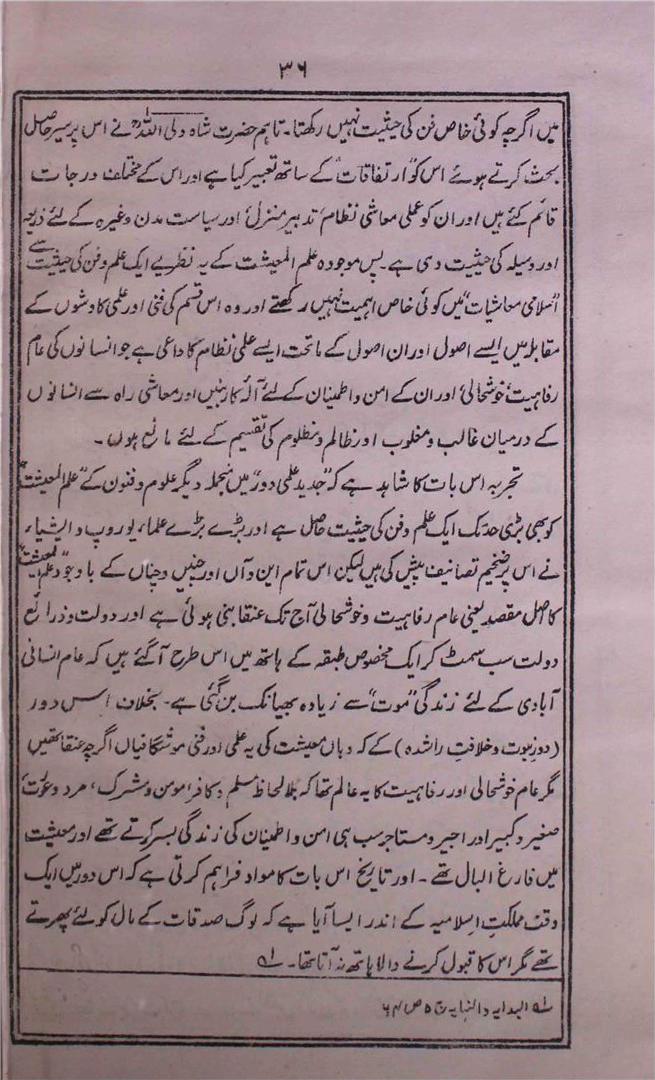 ۳۶
میں اگرچہ کوئی خاص فن کی حیثیت نہیں رکھتا۔ تاہم حضرت شاہ ولی اللہؒ نے اس پر سیر حاصل
بحث کرتے ہوئے اس کو "ارتفاقات" کے ساتھ تعبیر کیا ہے اور اس کے مختلف درجات
قائم کئے ہیں اور ان کو عملی معاشی نظام، تدبیر منزل، اور سیاست مدن وغیرہ کے لئے ذریعہ
اور وسیلہ کی حیثیت دی ہے۔ پس موجودہ علم المعیشت کے یہ نظریے ایک علم و فن کی حیثیت سے
"اسلامی معاشیات" میں کوئی خاص اہمیت نہیں رکھتے اور وہ اس قسم کی فنی اور علمی کاوشوں کے
مقابلہ میں ایسے اصول اور ان اصول کے ماتحت ایسے علمی نظام کا داعی ہے جو انسانوں کی عام
رفاہیت، خوشحالی، اور ان کے امن و اطمینان کے لئے آلہ کار بنیں اور معاشی راہ سے انسانوں
کے درمیان غالب و مغلوب اور ظالم و مظلوم کی تقسیم کے لئے مانع ہوں۔
تجربہ اس بات کا شاہد ہے کہ "جدید علمی دور" میں منجملہ دیگر علوم و فنون کے "علم المعیشت"
کو بھی بڑی حد تک ایک علم و فن کی حیثیت حاصل ہے اور بڑے بڑے علماء یوروپ و ایشیاء
نے اس پر ضخیم تصانیف پیش کی ہیں لیکن اس تمام این و آں اور چنیں و چناں کے باوجود "علم المعیشت"
کا اصل مقصد یعنی عام رفاہیت و خوشحالی آج تک عنقا بنی ہوئی ہے اور دولت و ذرائع
دولت سب سمٹ کر ایک مخصوص طبقہ کے ہاتھ میں اس طرح آگئے ہیں کہ عام انسانی
آبادی کے لئے زندگی "موت" سے زیادہ بھیانک بن گئی ہے۔ بخلاف اس دور
(دور نبوت و خلافت راشدہ) کے کہ وہاں معیشت کی یہ علمی اور فنی موشگافیاں اگرچہ عنقا تھیں
مگر عام خوشحالی اور رفاہیت کا یہ عالم تھا کہ بلا لحاظ مسلم و کافر، مومن و مشرک، مرد و عورت،
صغیر و کبیر اور اجیر و مستاجر سب ہی امن و اطمینان کی زندگی بسر کرتے تھے اور معیشت
میں فارغ البال تھے۔ اور تاریخ اس بات کا مواد فراہم کرتی ہے کہ اس دور میں ایک
وقت مملکت اسلامیہ کے اندر ایسا آیا ہے کہ لوگ صدقات کے مال کو لئے پھرتے
تھے مگر اس کا قبول کرنے والا ہاتھ نہ آتا تھا۔ لہ
لہ البدایہ والنہایہ ج ۵ ص ۶۴